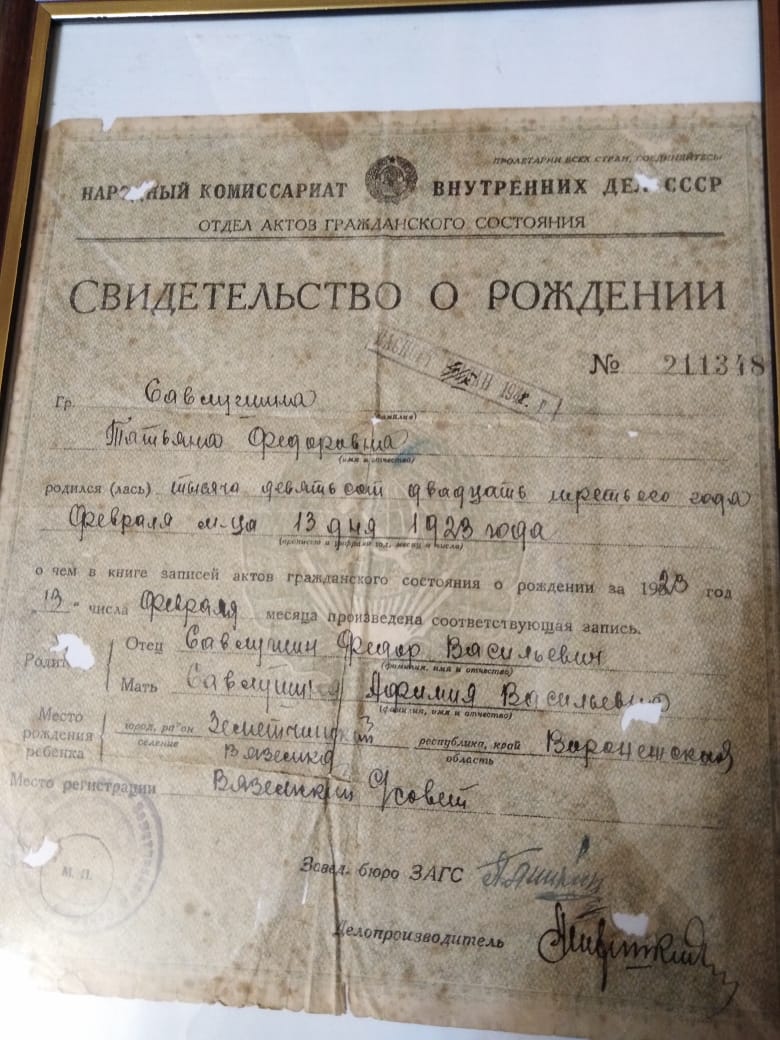 ПРОЛЕТАРИИ ВСЕХ СТРАН, СОЕДИНЯЙТЕСЬ
НАРОДНЫЙ КОМИССАРИАТ ВНУТРЕННИХ ДЕЛ СССР
ОТДЕЛ АКТОВ ГРАЖДАНСКОГО СОСТОЯНИЯ
СВИДЕТЕЛЬСТВО О РОЖДЕНИИ
№ 211348
Гр. Савлушина
(фамилия)
Татьяна Федоровна
(имя и отчество)
родился (лась) тысяча девятьсот двадцать третьего года
Февраля м-ца 13 дня 1923 года
(прописью и цифрами год, месяц и число)
о чем в книге записей актов гражданского состояния о рождении за 1923 год
"13" числа Февраля месяца произведена соответствующая запись.
Отец Савлушин Федор Васильевич
(фамилия, имя и отчество)
Мать Савлушина Афимия Васильевна
(фамилия, имя и отчество)
Место рождения ребенка
город, район Земетчинский
селение Вяземка
республика, край Воронежская
область
Место регистрации Вяземский С/совет
М. П.
Завед. бюро ЗАГС
Делопроизводитель